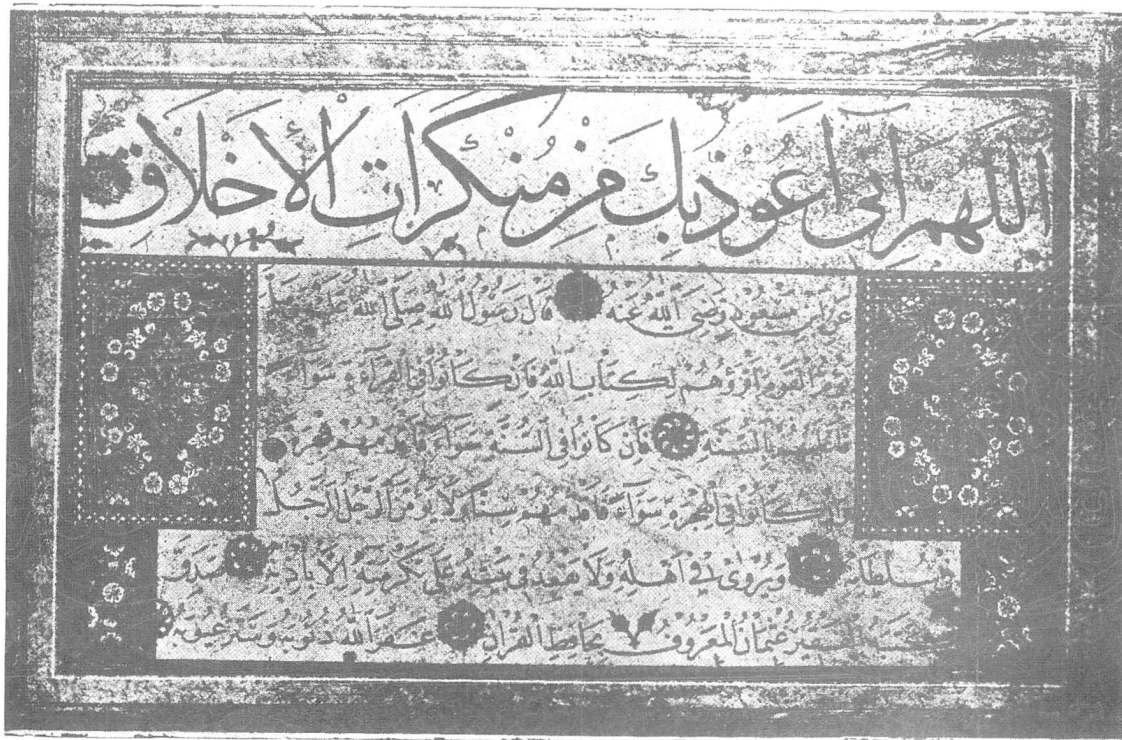 اللهم اني اعوذ بك من منكرات الأخلاق
عن ابن مسعود رضى الله عنه قال رسول الله صلى الله عليه وسلم
يؤم القوم اقرؤهم لكتاب الله فان كانوا فى القراءة سواء
فاعلمهم بالسنة فان كانوا فى السنة سواء فاقدمهم هجرة
فان كانوا فى الهجرة سواء فاقدمهم سنا ولا يؤمن الرجل الرجل
فى سلطانه ويروى فى اهله ولا يقعد فى بيته على تكرمته الا باذنه صدق
كتبه الفقير عثمان المعروف بحافظ القران غفر الله ذنوبه وستر عيوبه